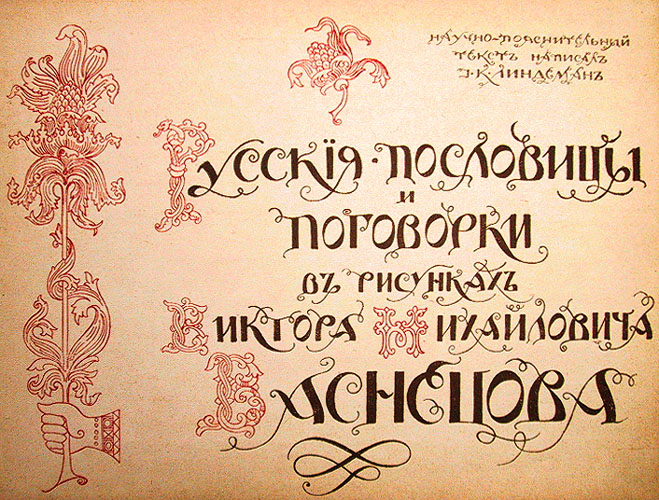 НАУЧНО-ПОЯСНИТЕЛЬНЫЙ
ТЕКСТЪ НАПИСАЛЪ
І. К. ЛИНДЕМАНЪ
РУССКІЯ · ПОСЛОВИЦЫ
И
ПОГОВОРКИ
ВЪ РИСУНКАХЪ
ВИКТОРА МИХАЙЛОВИЧА
ВАСНЕЦОВА